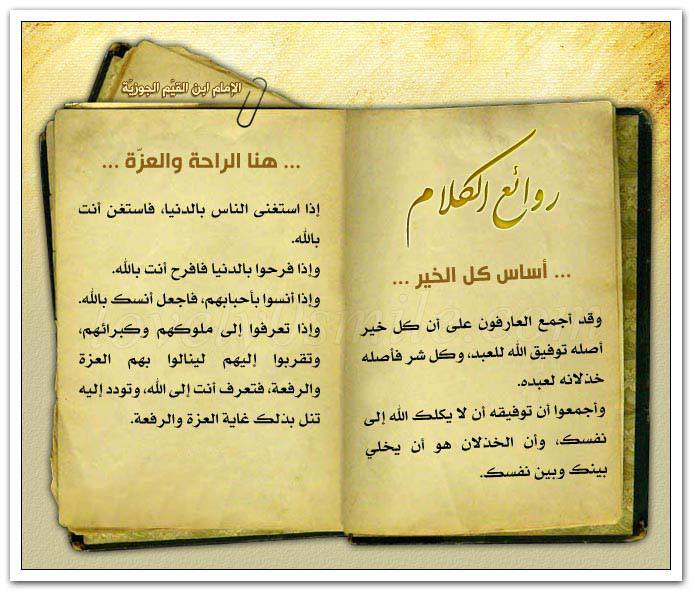 الإمام ابن القيّم الجوزيّة
روائع الكلام
... أساس كل الخير ...
وقد أجمع العارفون على أن كل خير
أصله توفيق الله للعبد، وكل شر فأصله
خذلانه لعبده.
وأجمعوا أن توفيقه أن لا يكلك الله إلى
نفسك، وأن الخذلان هو أن يخلي
بينك وبين نفسك.
... هنا الراحة والعزّة ...
إذا استغنى الناس بالدنيا، فاستغن أنت
بالله.
وإذا فرحوا بالدنيا فافرح أنت بالله.
وإذا أنسوا بأحبابهم، فاجعل أنسك بالله.
وإذا تعرفوا إلى ملوكهم وكبرائهم،
وتقربوا إليهم لينالوا بهم العزة
والرفعة، فتعرف أنت إلى الله، وتودد إليه
تنل بذلك غاية العزة والرفعة.